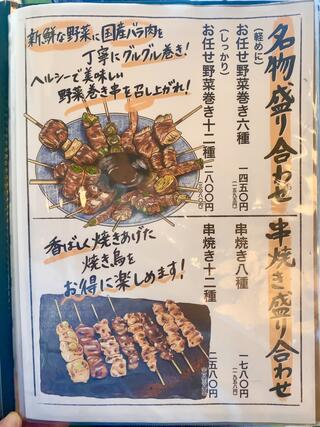 名物盛り合わせ
(軽めに)
お任せ野菜巻き六種
一四五〇円
(しっかり)
お任せ野菜巻き十二種
二八〇〇円
新鮮な野菜に国産バラ肉を
丁寧にグルグル巻き!
ヘルシーで美味しい
野菜巻き串を召し上がれ!
串焼き盛り合わせ
串焼き八種
一七八〇円
(一九五八円)
串焼き十二種
二五八〇円
香ばしく焼きあげた
焼き鳥を
お得に楽しめます!